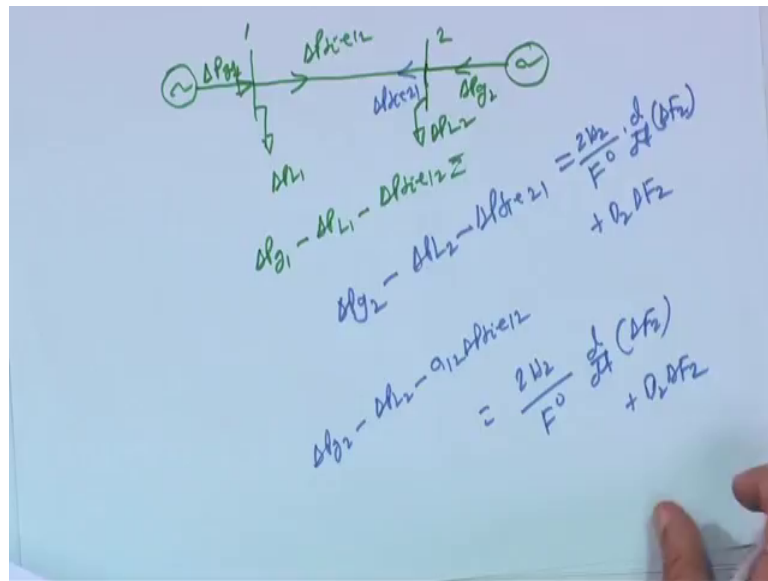 1 ΔPtie12 2
ΔPg1 ΔPtie21 ΔPg2
ΔPL1 ΔPL2
ΔPg1 - ΔPL1 - ΔPtie12 =
ΔPg2 - ΔPL2 - ΔPtie21 = 2H2/F⁰ · d/dt (ΔF2)
+ D2ΔF2
ΔPg2 - ΔPL2 - a12ΔPtie12
= 2H2/F⁰ d/dt (ΔF2)
+ D2ΔF2